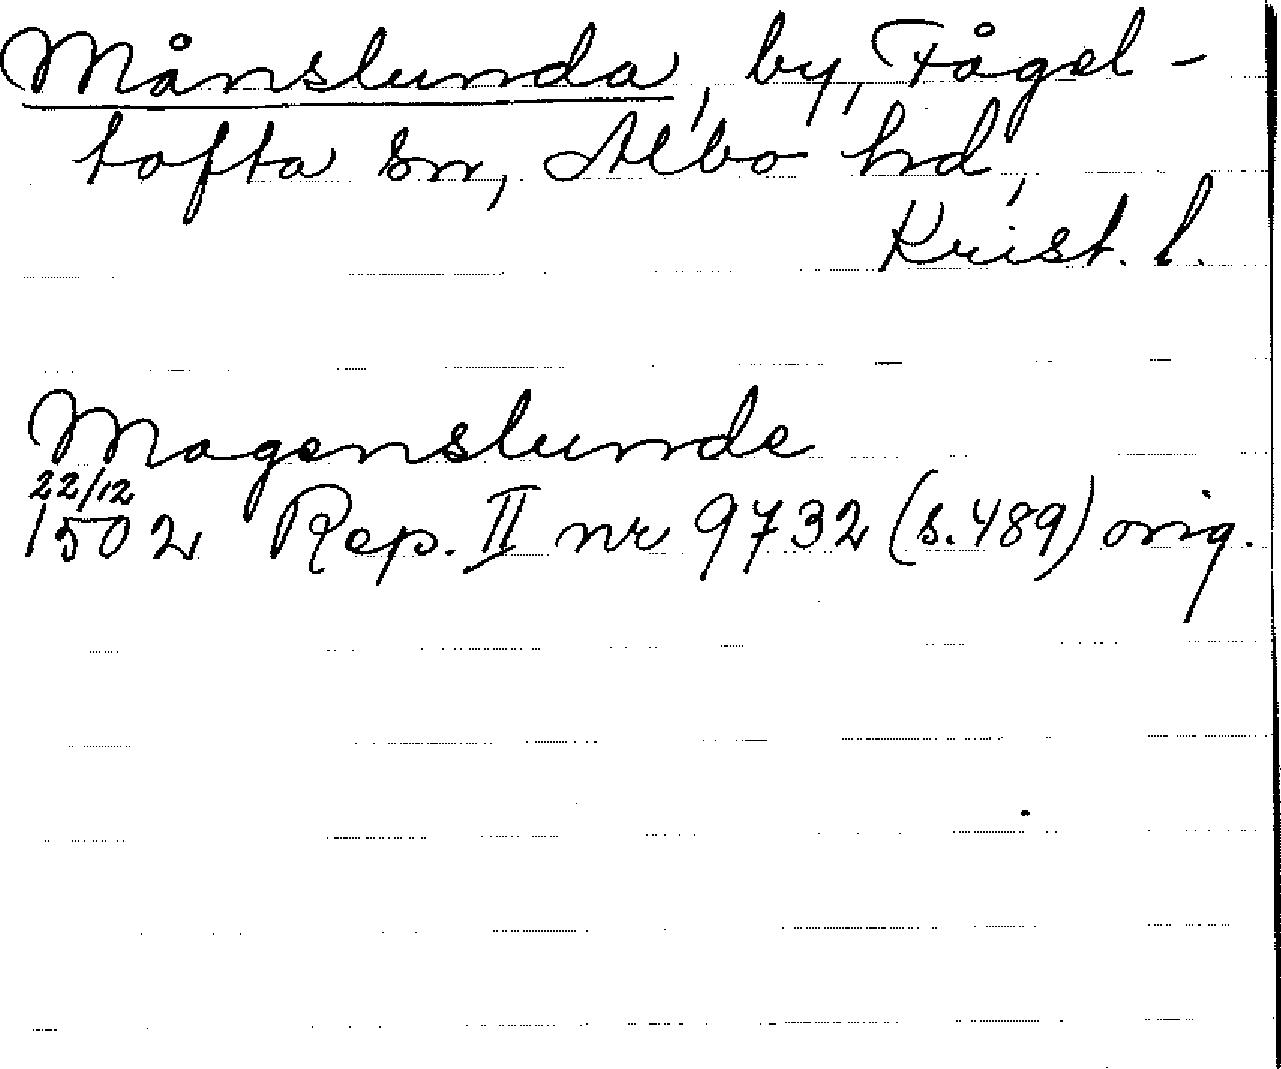 Månslunda, by, Fågel-
tofta sn, Albo hd,
Krist. l.
Magenslunde
22/12
1502 Rep. II nr 9732 (s. 489) orig.